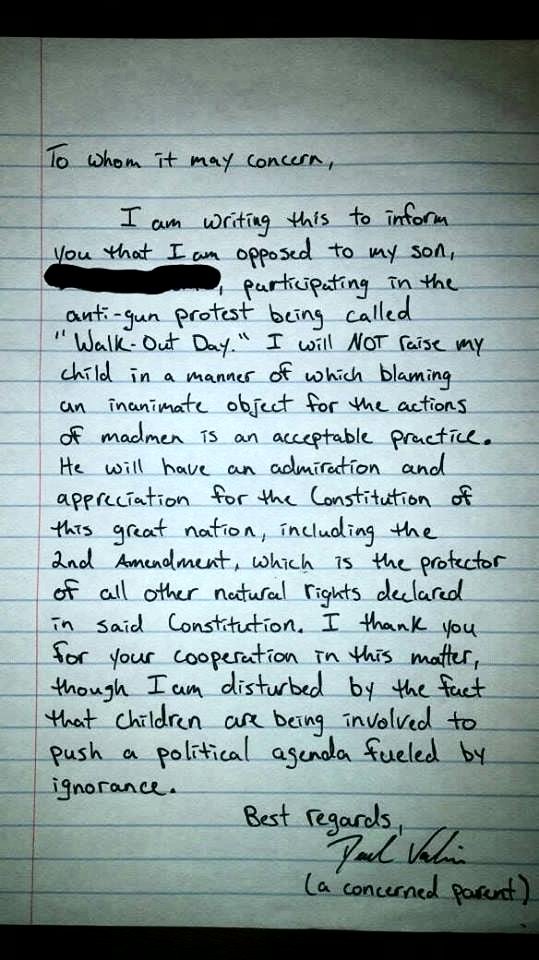 To whom it may concern,
I am writing this to inform
you that I am opposed to my son,
, participating in the
anti-gun protest being called
"Walk-Out Day." I will NOT raise my
child in a manner of which blaming
an inanimate object for the actions
of madmen is an acceptable practice.
He will have an admiration and
appreciation for the Constitution of
this great nation, including the
2nd Amendment, which is the protector
of all other natural rights declared
in said Constitution. I thank you
for your cooperation in this matter,
though I am disturbed by the fact
that children are being involved to
push a political agenda fueled by
ignorance.
Best regards,
(a concerned parent)